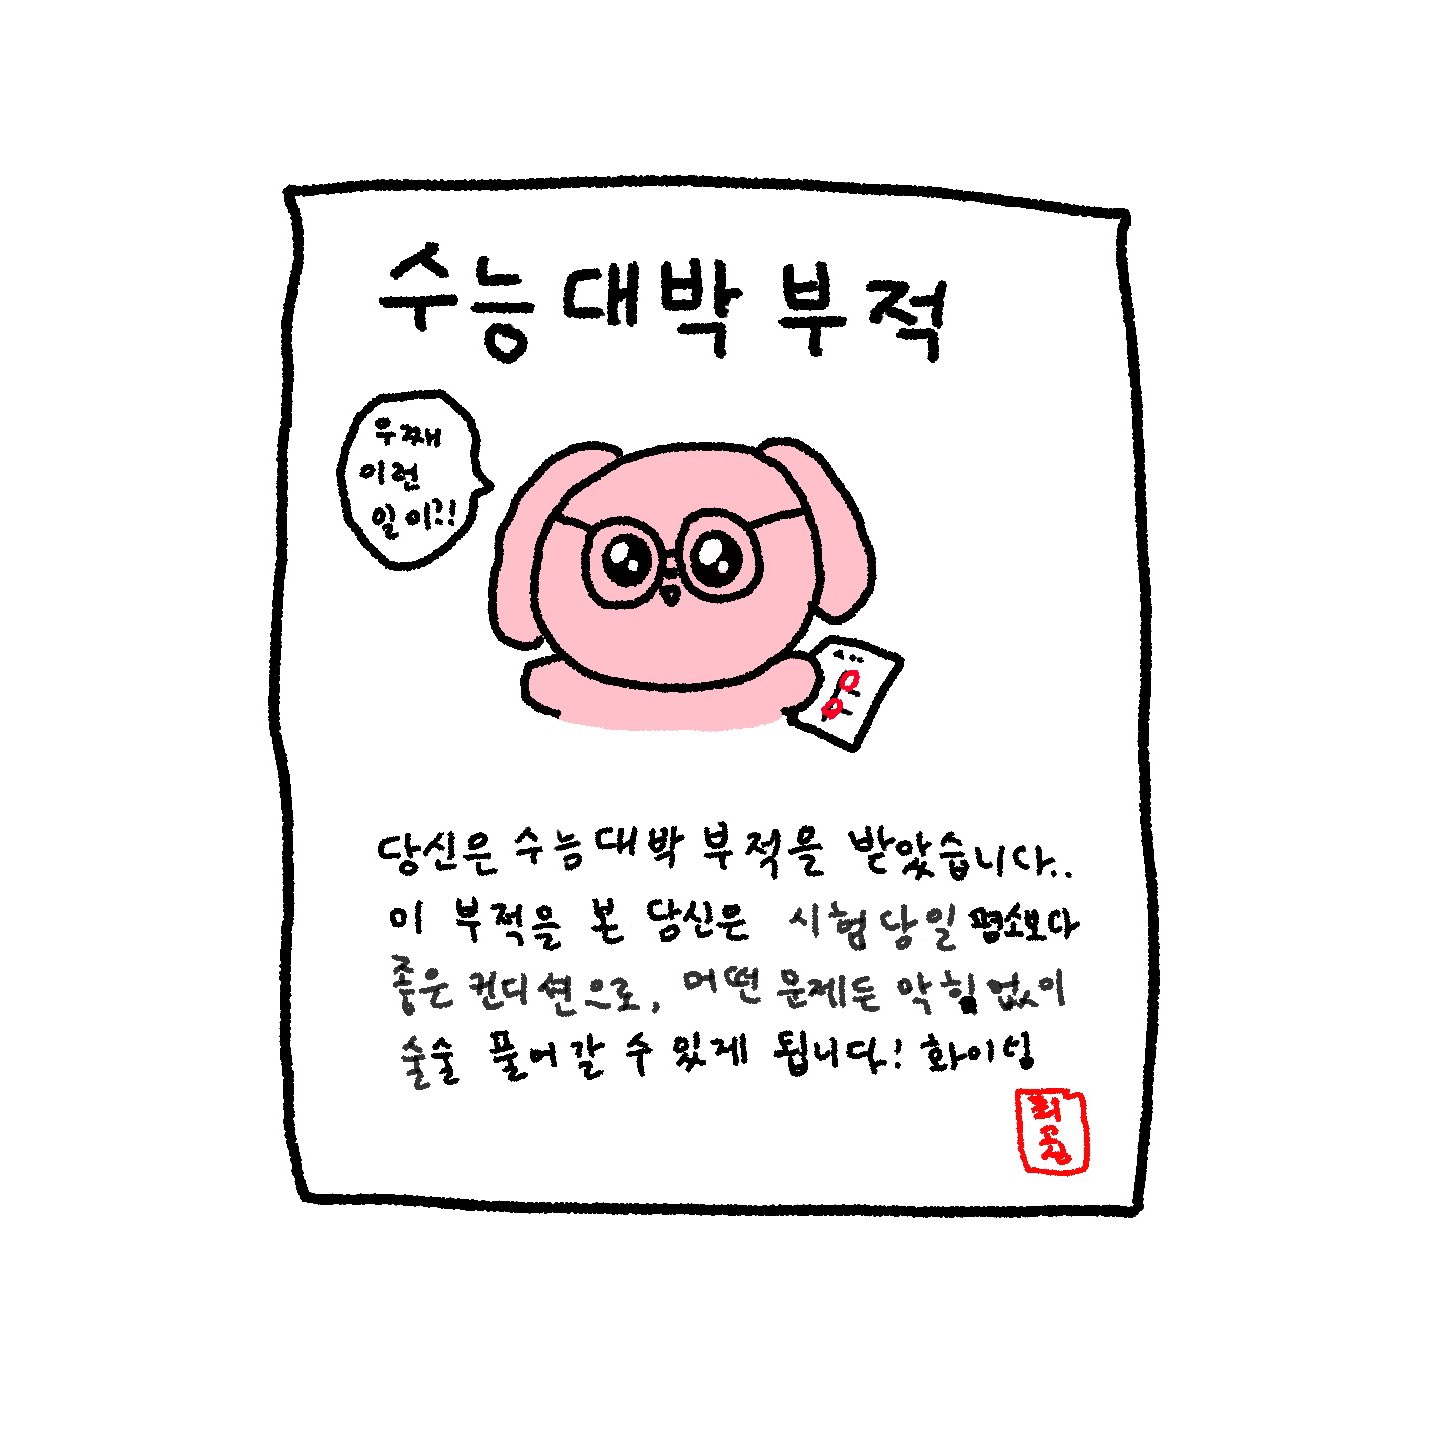 수능대박 부적
우째
이런
일이?!
당신은 수능대박 부적을 받았습니다..
이 부적을 본 당신은 시험당일 평소보다
좋은 컨디션으로, 어떤 문제든 막힘없이
술술 풀어갈 수 있게 됩니다! 화이팅